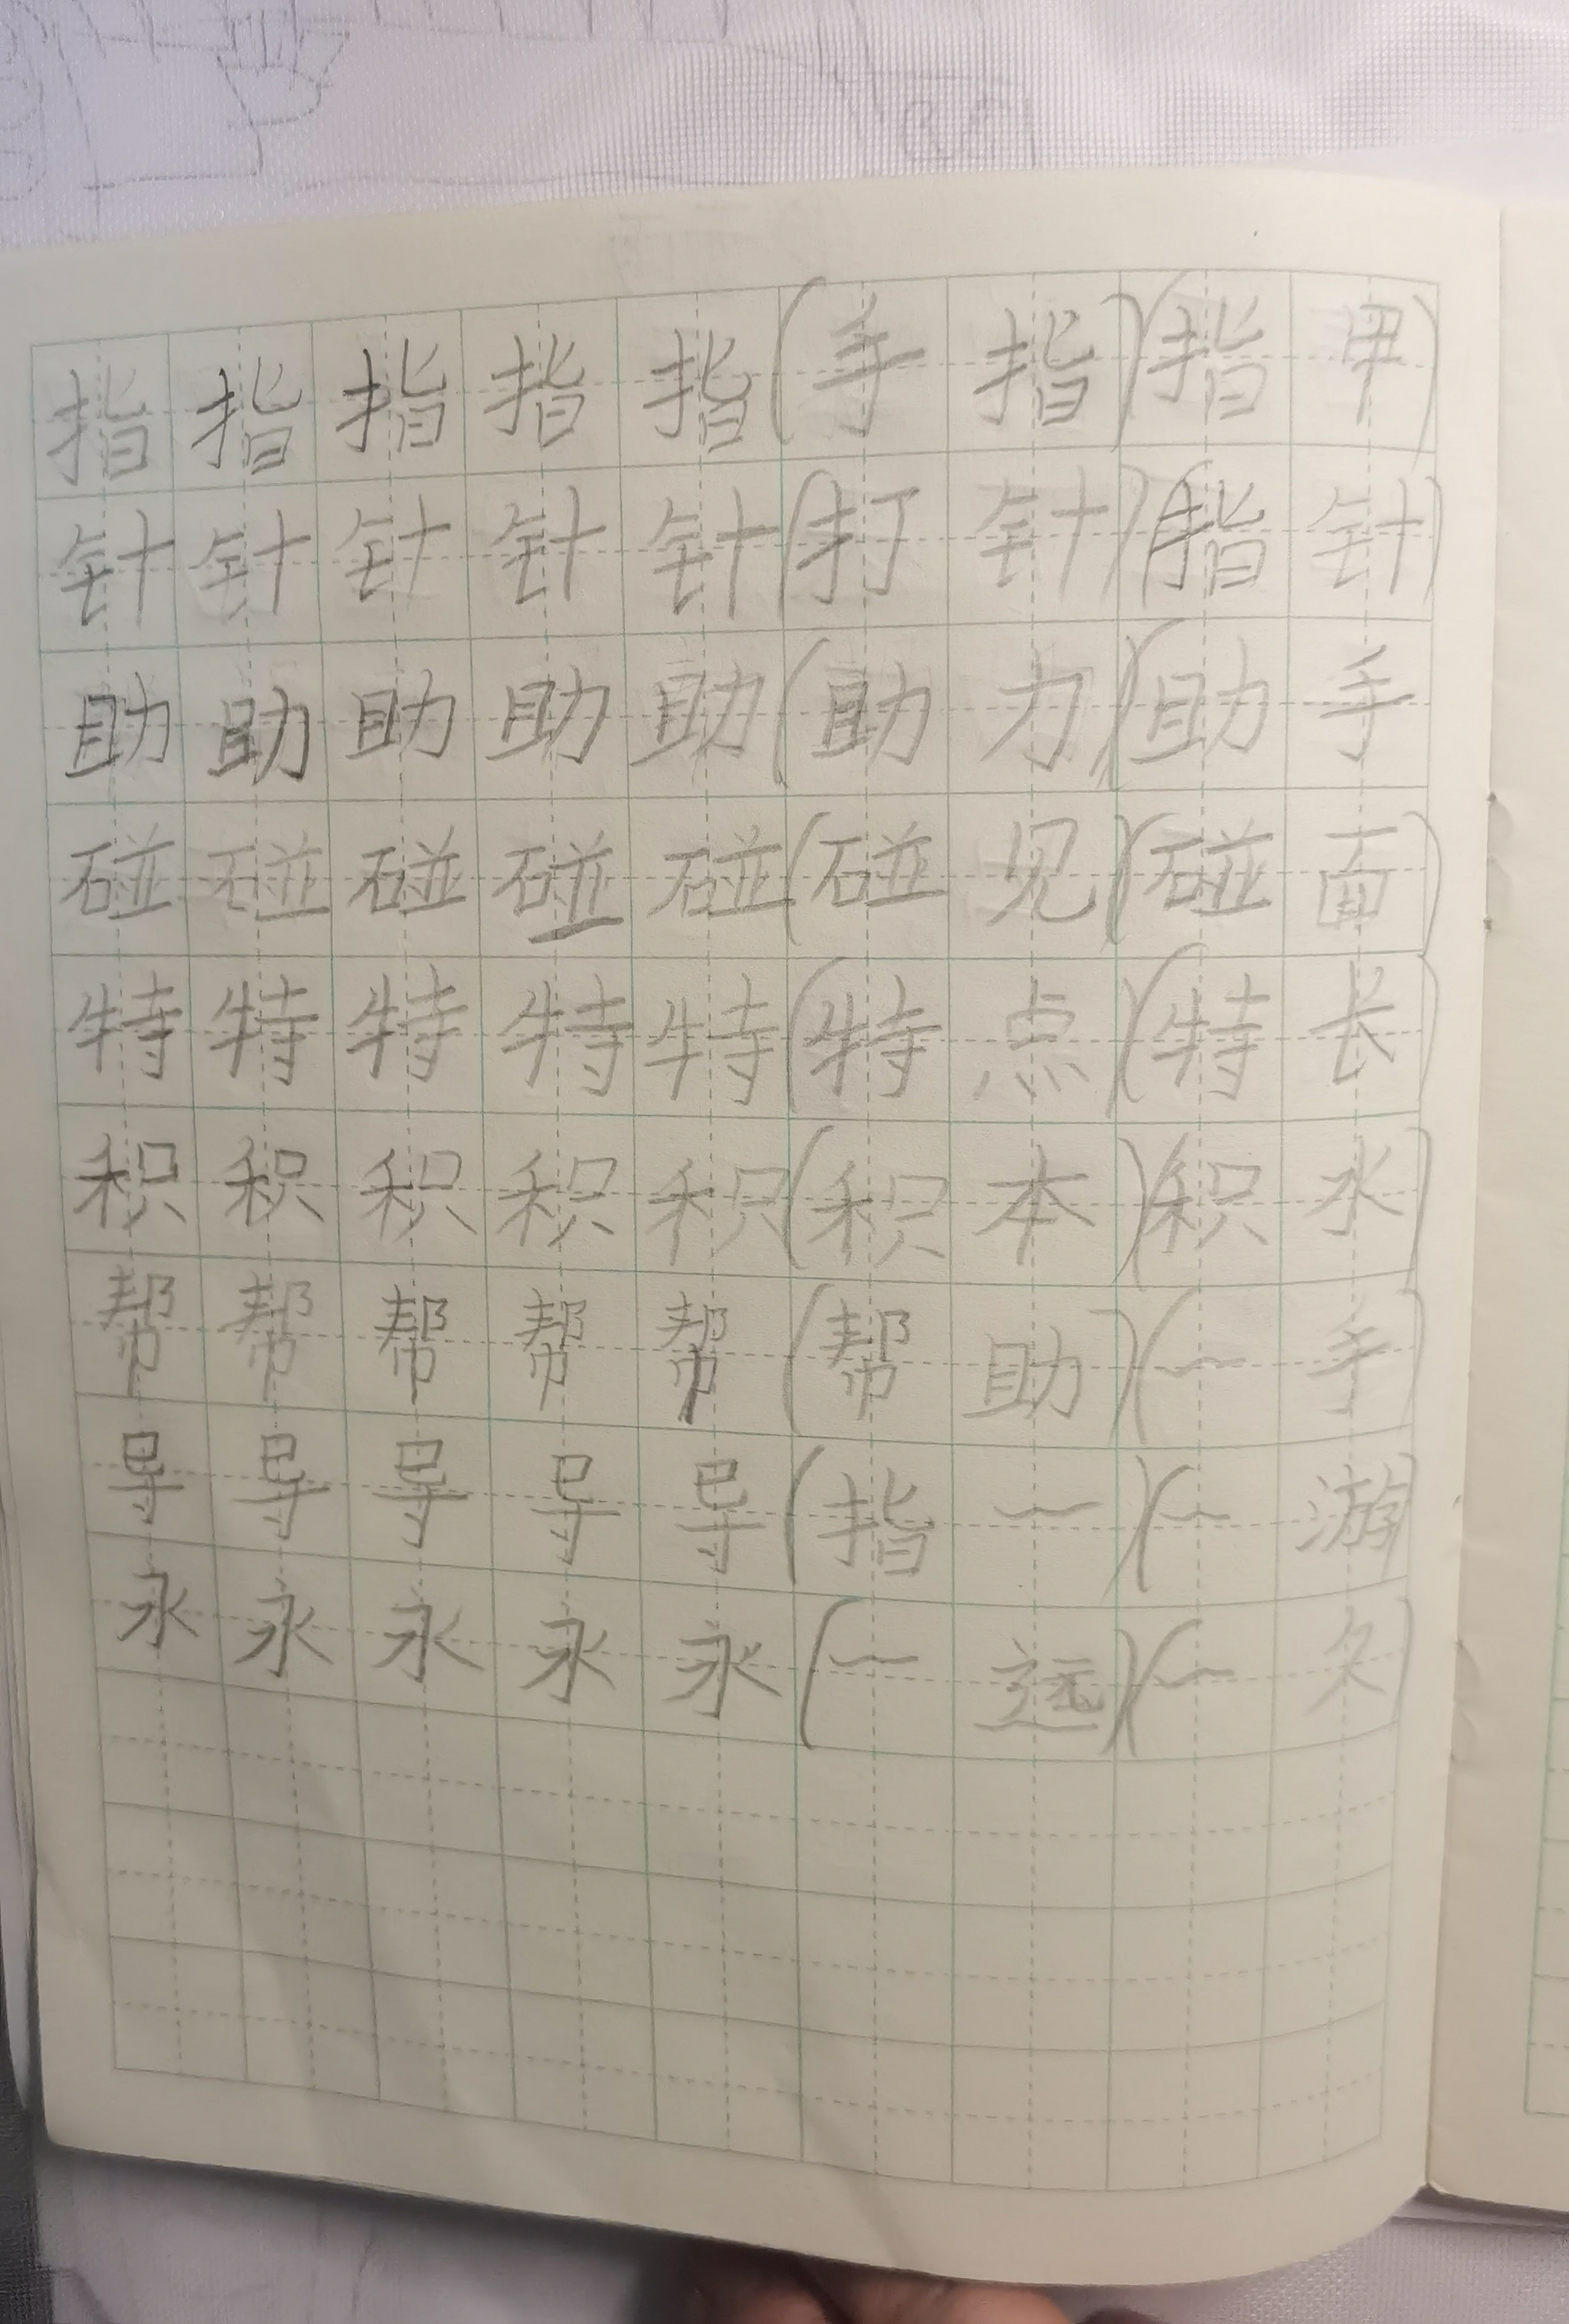 指指指指指(手指)(指甲)
针针针针针(打针)(指针)
助助助助助(助力)(助手
碰碰碰碰碰(碰见)(碰面)
特特特特特(特点)(特长)
积积积积积(积本)(积水)
帮帮帮帮帮(帮助)(一手)
导导导导导(指一)(一游)
永永永永永(一远)(一久)